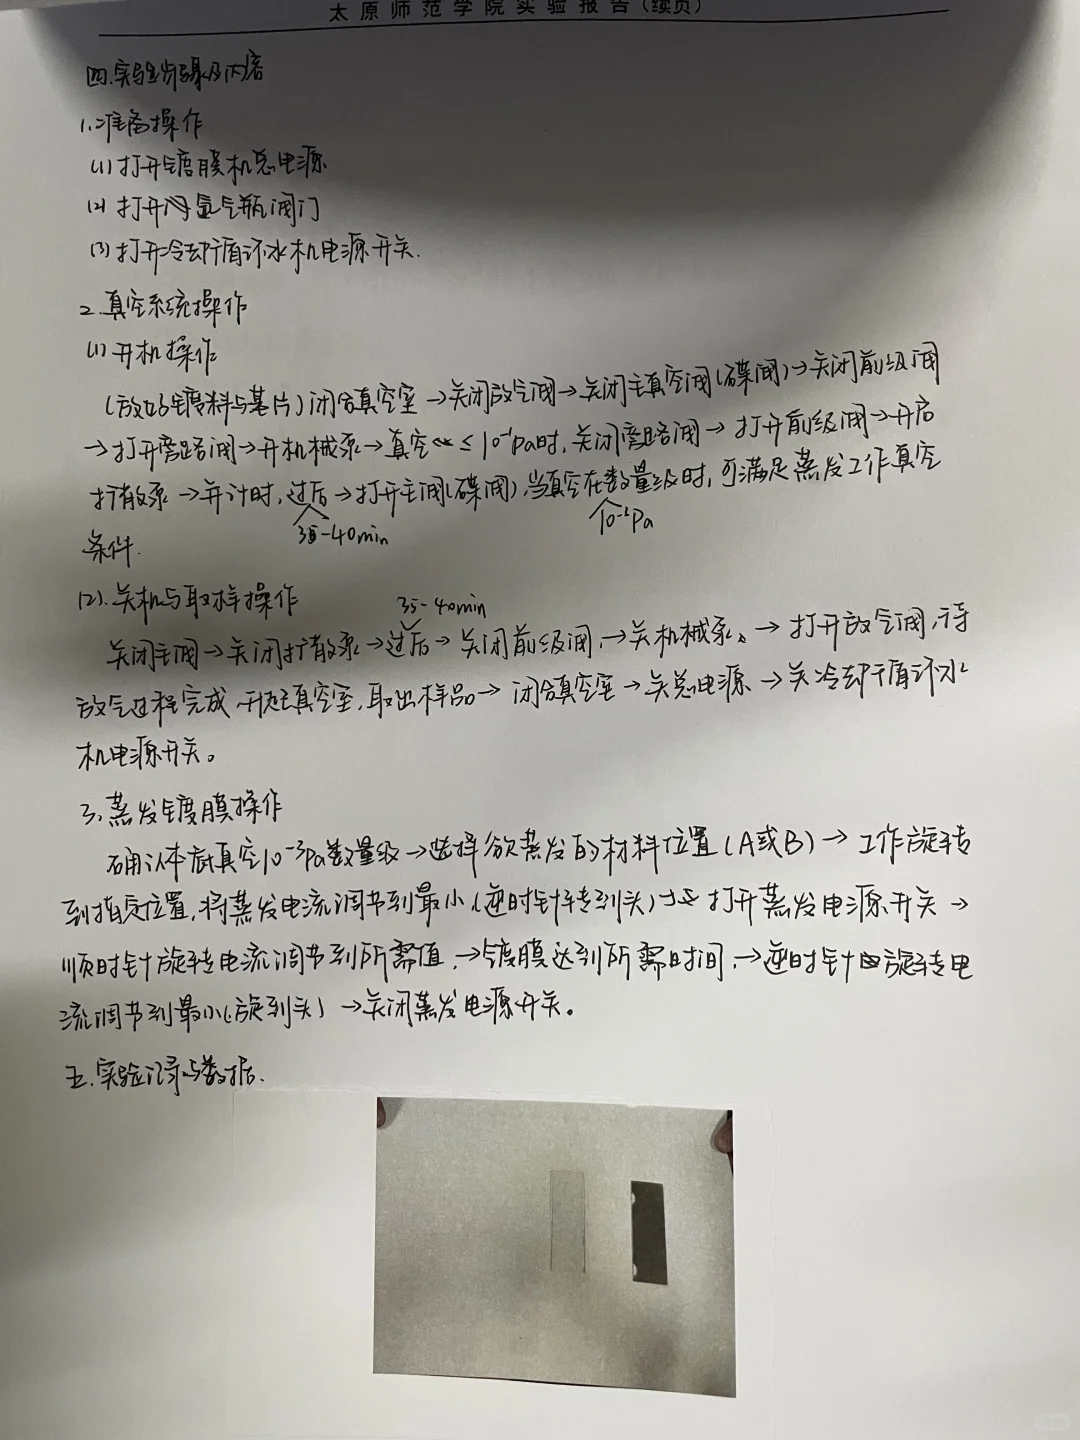 太原师范学院实验报告(续页)
四.实验步骤及内容
1.准备操作
(1)打开镀膜机总电源
(2)打开氩气瓶阀门
(3)打开冷却循环水机电源开关.
2.真空系统操作
(1)开机操作
(放好镀料与基片)闭合真空室→关闭放气阀→关闭主真空阀(碟阀)→关闭前级阀
→打开旁路阀→开机械泵→真空≤10⁻¹Pa时,关闭旁路阀→打开前级阀→开启
扩散泵→并计时,过后→打开主阀(碟阀),当真空在数量级时,可满足蒸发工作真空
35-40min
10⁻²Pa
条件.
(2).关机与取样操作
35-40min
关闭主阀→关闭扩散泵→过后→关闭前级阀,→关机械泵、→打开放气阀,待
放气过程完成,开起真空室,取出样品→闭合真空室→关总电源→关冷却循环水
机电源开关。
3.蒸发镀膜操作
确认本底真空10⁻³Pa数量级→选择欲蒸发的材料位置(A或B)→工作旋转
到指定位置,将蒸发电流调节到最小(逆时针转到头)→打开蒸发电源开关→
顺时针旋转电流调节到所需值,→镀膜达到所需时间,→逆时针旋转电
流调节到最小(旋到头)→关闭蒸发电源开关。
五.实验记录与数据.